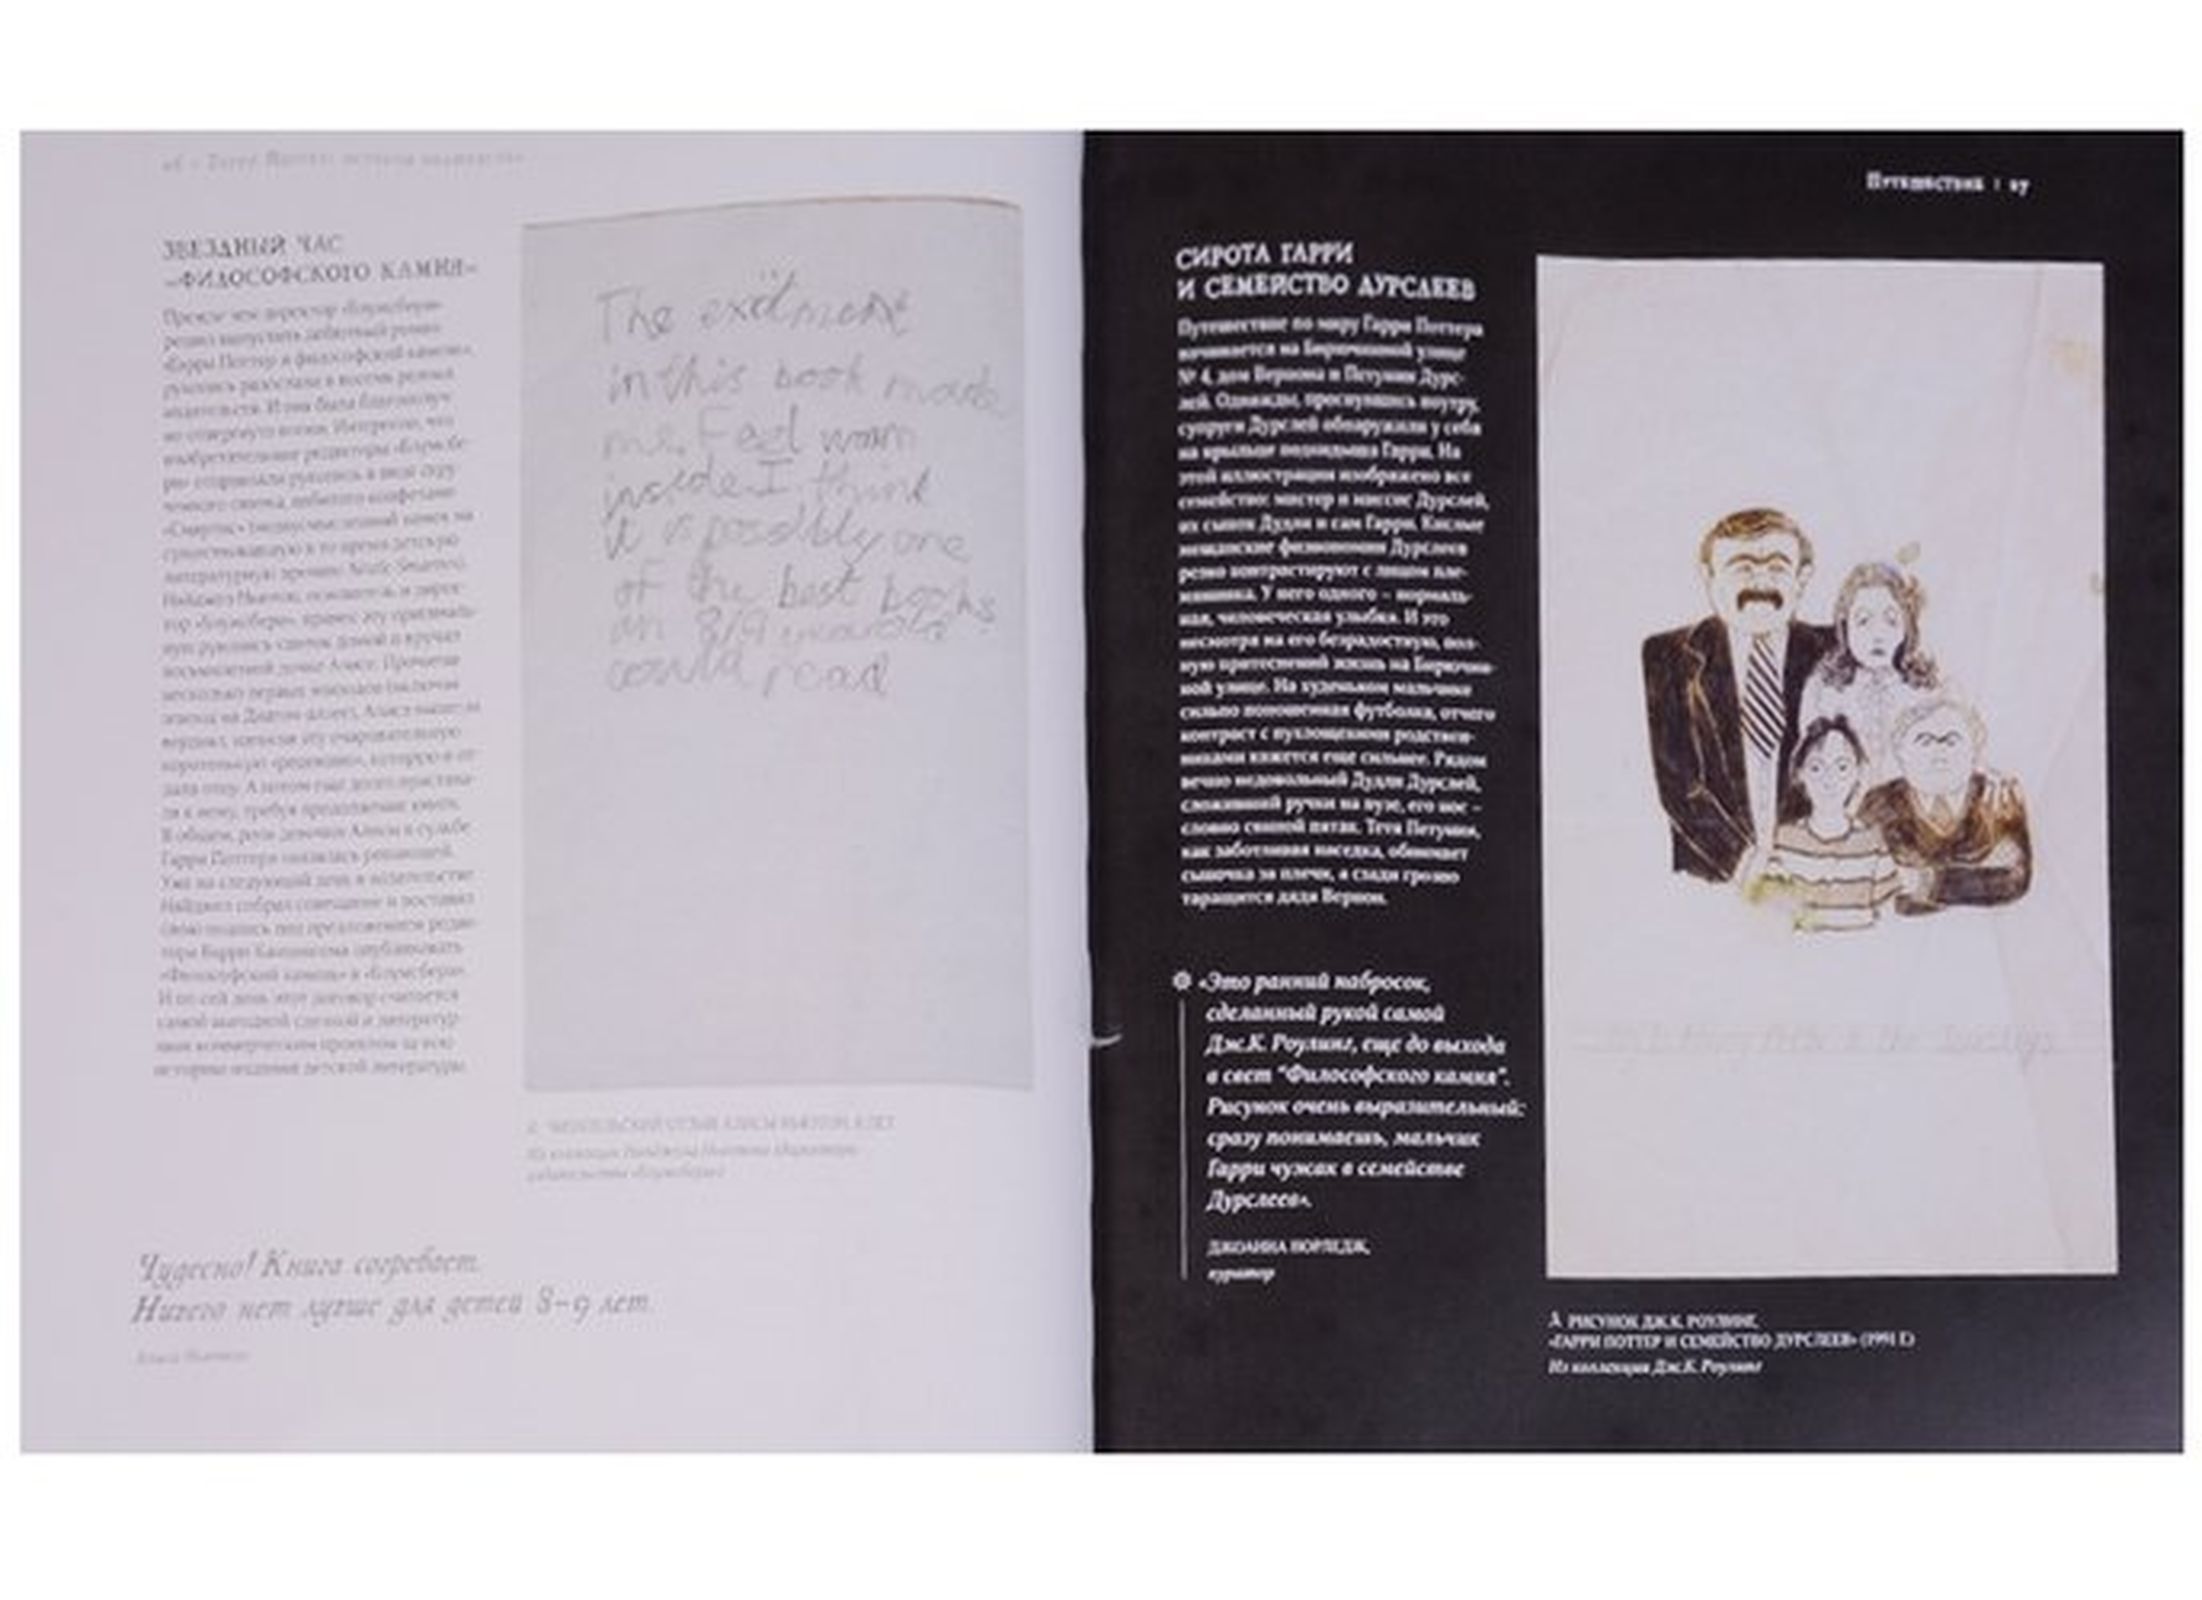 26 : Гарри Поттер: история волшебства
ЗВЕЗДНЫЙ ЧАС
«ФИЛОСОФСКОГО КАМНЯ»
Прежде чем директор «Блумсбери»
решил выпустить дебютный роман
«Гарри Поттер и философский камень»,
рукопись разослали в восемь разных
издательств. И она была благополуч-
но отвергнута всеми. Интересно, что
изобретательные редакторы «Блумсбе-
ри» отправляли рукопись в виде
свитка, набитого конфетами
«Смартис»
существовавшую в то время детскую
литературную премию Nestlé Smarties).
Найджел Ньютон, основатель и дирек-
тор «Блумсбери», принес эту оригиналь-
ную рукопись-свиток домой и вручил
восьмилетней дочке Алисе. Прочитав
несколько первых эпизодов (включая
эпизод на Диагон-аллее), Алиса вынесла
вердикт, написав эту очаровательную
коротенькую «рецензию», которую и от-
дала отцу. А потом еще долго приставала
к нему, требуя продолжение книги.
В общем, роль девочки Алисы в судьбе
Гарри Поттера оказалась решающей.
Уже на следующий день в издательстве
Найджел собрал совещание и поставил
свою подпись под предложением редак-
тора Барри Каннингема опубликовать
«Философский камень» в «Блумсбери».
И по сей день этот договор считается
самой выгодной сделкой и литератур-
ным коммерческим проектом за всю
историю издания детской литературы.
The exitment
in this book made
me Feel warm
inside. I think
it is possibly one
of the best books
an 8/9 year old
could read
ЧИТАТЕЛЬСКИЙ ОТЗЫВ АЛИСЫ НЬЮТОН, 8 ЛЕТ
Из коллекции Найджела Ньютона (директора
издательства «Блумсбери»)
Чудесно! Книга согревает.
Ничего нет лучше для детей 8–9 лет.
Алиса Ньютон
Путешествие : 27
СИРОТА ГАРРИ
И СЕМЕЙСТВО ДУРСЛЕЕВ
Путешествие по миру Гарри Поттера
начинается на Бирючинной улице
№ 4, дом Вернона и Петунии Дурс-
лей. Однажды, проснувшись поутру,
супруги Дурслей обнаружили у себя
на крыльце подкидыша Гарри. На
этой иллюстрации изображено все
семейство: мистер и миссис Дурслей,
их сынок Дудли и сам Гарри. Кислые
мещанские физиономии Дурслеев
резко контрастируют с лицом пле-
мянника. У него одного – нормаль-
ная, человеческая улыбка. И это
несмотря на его безрадостную, пол-
ную притеснений жизнь на Бирючин-
ной улице. На худеньком мальчике
сильно поношенная футболка, отчего
контраст с пухлощекими родствен-
никами кажется еще сильнее. Рядом
вечно недовольный Дудли Дурслей,
сложивший ручки на пузе, его нос –
словно свиной пятак. Тетя Петуния,
как заботливая наседка, обнимает
сыночка за плечи, а сзади грозно
таращится дядя Вернон.
«Это ранний набросок,
сделанный рукой самой
Дж.К. Роулинг, еще до выхода
в свет "Философского камня".
Рисунок очень выразительный:
сразу понимаешь, мальчик
Гарри чужак в семействе
Дурслеев».
ДЖОАННА НОРЛЕДЖ,
куратор
Harry Potter & the Dursleys
РИСУНОК ДЖ.К. РОУЛИНГ,
«ГАРРИ ПОТТЕР И СЕМЕЙСТВО ДУРСЛЕЕВ» (1991 Г.)
Из коллекции Дж.К. Роулинг